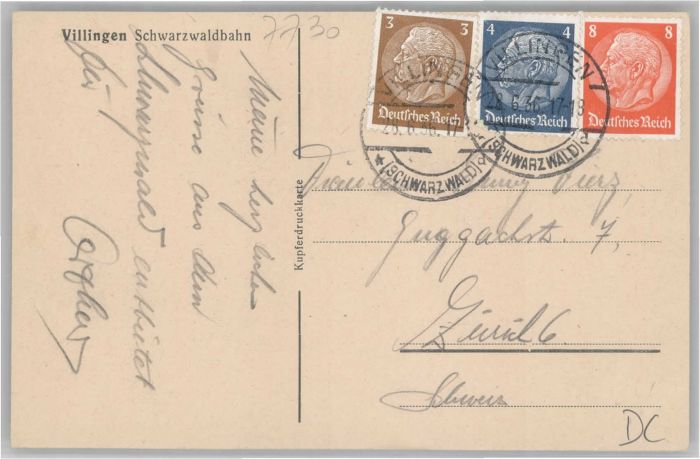 Villingen Schwarzwaldbahn
7730
Meine herzlichen
Grüsse aus dem
Schwarzwald entbietet
Dir
Kupferdruckkarte
3 3
Deutsches Reich
4 4
Deutsches Reich
8 8
Deutsches Reich
VILLINGEN
28.6.36.17-18
(SCHWARZWALD)
VILLINGEN
28.6.36.17-18
(SCHWARZWALD)
Fräulein
Guggachstr. 7,
Zürich 6
Schweiz
DC